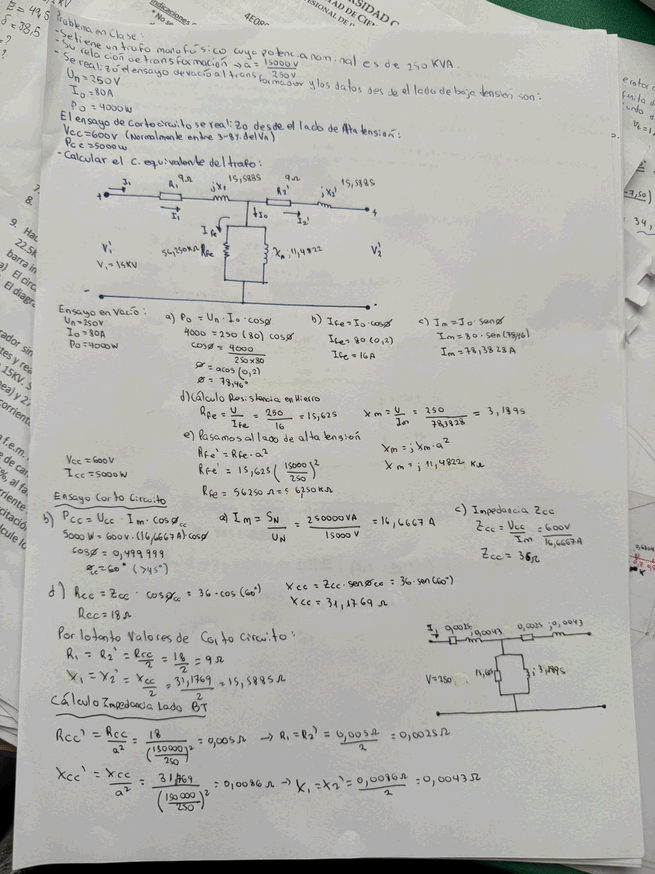 Problema en Clase:
- Se tiene un trafo monofásico cuya potencia nominal es de 250 KVA.
- Su relación de transformación → a = 15000V / 250V
- Se realizó el ensayo de vacío al transformador y los datos desde el lado de baja tensión son:
Un = 250V
Io = 80A
Po = 4000w
El ensayo de Cortocircuito se realizo desde el lado de Alta tensión:
Vcc = 600V (Normalmente entre 3-8% del VN)
Pcc = 5000w
- Calcular el C. equivalente del trafo:
I1 R1 9Ω jX1 15,5885 R2' 9Ω jX2' 15,5885
I1 Io I2'
IFe
56,250KΩ RFe Xm 11,4822
V1'
V1 = 15KV
V2'
Ensayo en Vacío:
Un = 250V
Io = 80A
Po = 4000w
a) Po = Un · Io · cosø
4000 = 250 (80) cosø
cosø = 4000 / 250x80
ø = acos (0,2)
ø = 78,46°
b) IFe = Io · cosø
IFe = 80 (0,2)
IFe = 16A
c) Im = Io · senø
Im = 80 · sen (78,46)
Im = 78,3828A
d) Cálculo Resistencia en Hierro
RFe = U / IFe = 250 / 16 = 15,625
Xm = U / Im = 250 / 78,3828 = 3,1895
e) Pasamos al lado de alta tensión
RFe' = RFe · a²
RFe' = 15,625 (15000 / 250)²
RFe = 56250Ω = 56250KΩ
Xm = j Xm · a²
Xm = j 11,4822 KΩ
Vcc = 600V
Icc = 5000w
Ensayo Corto Circuito
b) Pcc = Ucc · Im · cosøcc
5000W = 600V · (16,6667A) cosø
cosø = 0,499999
øcc = 60° (>45°)
a) Im = SN / UN = 250000VA / 15000V = 16,6667 A
c) Impedancia Zcc
Zcc = Vcc / Im = 600V / 16,6667A
Zcc = 36Ω
d) Rcc = Zcc · cosøcc = 36 · cos (60°)
Rcc = 18Ω
Xcc = Zcc · senøcc = 36 · sen (60°)
Xcc = 31,1769 Ω
Por lo tanto Valores de Corto Circuito:
R1 = R2' = Rcc / 2 = 18 / 2 = 9Ω
X1 = X2' = Xcc / 2 = 31,1769 / 2 = 15,5885Ω
I1 0,0025 j0,0043 0,0025 j0,0043
V=250 15,625 j3,1895
Cálculo Impedancia Lado BT
Rcc' = Rcc / a² = 18 / (150000 / 250)² = 0,005Ω → R1 = R2' = 0,005Ω / 2 = 0,0025Ω
Xcc' = Xcc / a² = 31,1769 / (150000 / 250)² = 0,0086Ω → X1 = X2' = 0,0086Ω / 2 = 0,0043Ω
9. Hac
22.5K
barra in
a) El circ
El diagra
15KV. S